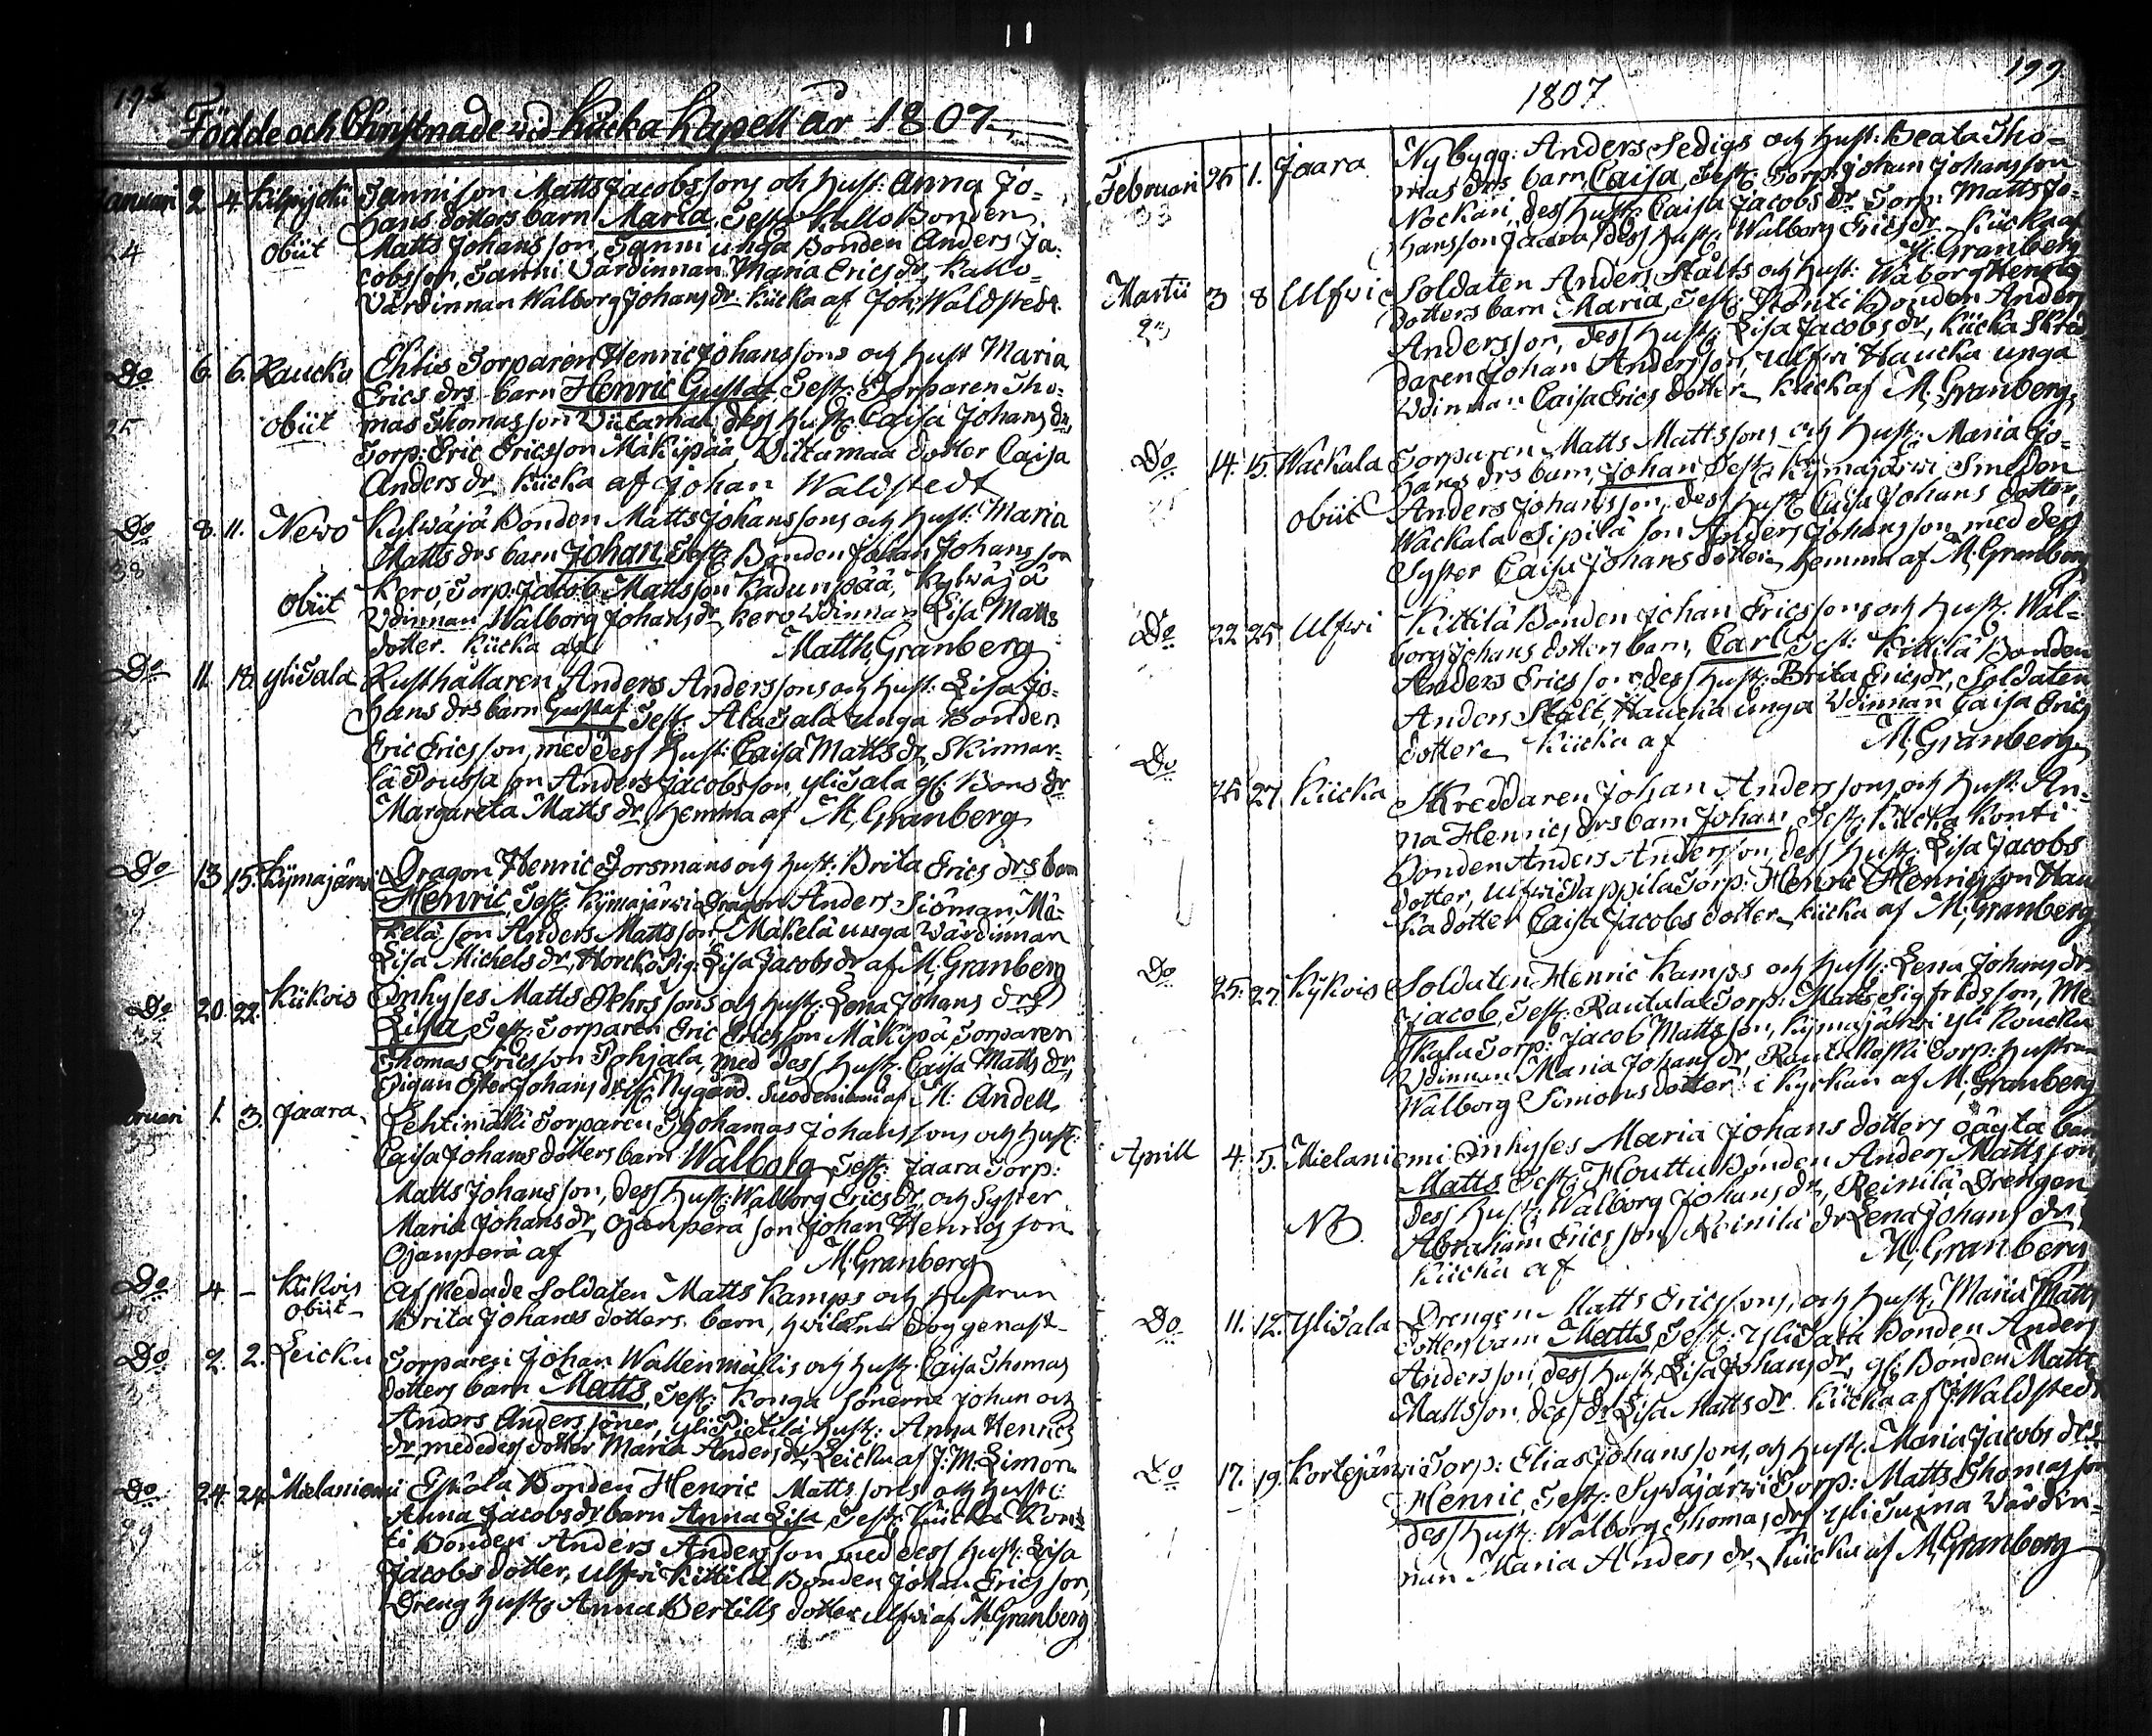 198
Födde och Christnade vid Kiicka Kapell år 1807
Januari 2 4 Sanni son Matts Jacobssons och hust: Anna Jo-
hans dotters barn Maria, Test: Kallo Bonden
24 obiit Matts Johansson, Sanni unga Bonden Anders Ja-
cobsson, Sanni Värdinnan Maria Erics dr, Kallo
Värdinnan Walborg Johans dr Kiicka af Joh: Waldstedt
Do 6. 6. Raucko Ehtis Torparen Henric Johanssons och Hust Maria
Erics drs barn Henric Gustaf Test: Torparen Tho-
25 obiit mas Thomasson dess hust: Caisa Johans dr,
Torp: Eric Ericsson Mäkipää, dotter Caisa
Anders dr Kiicka af Johan Waldstedt
Do 8. 11. Nevo Kylwäjä Bonden Matts Johanssons och Hust: Maria
38 Matts drs barn Johan, Test: Bonden Johan Johansson
Kero, Torp: Jacob Mattsson Kadunpää, Kylwäjä
obiit Wdinnan Walborg Johans dr, Kero Wdinnan Lisa Matts
dotter. Kiicka af Matth: Granberg
Do 11. 18. Yli Sala Rusthållaren Anders Anderssons och hust: Lisa Jo-
hans drs barn Gustaf Test: Ala Sala unga Bonden
Eric Ericsson, med dess hust: Caisa Matts dr, Skinnar-
lä son Anders Jacobsson, Yli Sala gl: Bons dr
Margareta Matts dr, hemma af M, Granberg
Do 13 15. Kijmajärwi Dragon Henric Forsmans och hust: Brita Erics drs barn
Henric, Test: Kijmajärwi Dragon Anders Siöman, Mä-
kelä son Anders Mattsson, Mäkelä unga Wärdinnan
Lisa Michels dr, Horcko Pig: Lisa Jacobs dr af M, Granberg
Do 20. 22. Kiikois Inhyses Matts Pehrssons och hust: Lena Johans drs
Lisa, Test: Torparen Eric Ericsson Mäkipä Torparen
Thomas Ericsson Pohjala, med dess hust: Caisa Matts dr,
Pigan Ester Johans dr Nygård. Suodeniemi af M. Andell
Februari 1. 3. Jaara Lehtimäki Torparen Thomas Johanssons och hust:
Caisa Johans dotters barn Walborg, Test: Jaara Torp:
Matts Johansson, dess hust: Walborg Erics dr, och Syster
Maria Johans dr, Ojanperä son Johan Henricsson
Ojanperä af M, Granberg
Do 4 - Kiikois Afskedade Soldaten Matts Kamps och hustrun
obiit Brita Johans dotters barn, hvilken dog genast
Do 2. 2. Leicku Torparen Johan Wallenmäkis och hust: Caisa Thomas
dotters barn Matts, Test: Konga sönerne Johan och
Anders Anderssöner, Yli Pietilä hust: Anna Henrics
dr, med dess dotter Maria Anders dr, Leicku af J: M: Limon
Do 24. 24. Mielaniemi Eskola Bonden Henric Mattssons och hust:
Anna Jacobs dr barn Anna Lisa, Test: Kiicka Kon-
29 ti Bonden Anders Andersson med dess hust: Lisa
Jacobs dotter, Ulfwi Kittilä Bonden Johan Ericsson,
Dreng hust: Anna Bertills dotter Ulfwi af M, Granberg
199
1807
Februari 26 1. Jaara Nybygg: Anders Sedigs och hust: Beata Tho-
mas drs barn, Caisa, Test: Torp: Johan Johansson
33 Nockari, dess hust: Caisa Jacobs dr Torp: Matts Jo-
hansson Jaara, dess hust: Walborg Erics dr Kiicka af
M, Granberg
Martii 3 8 Ulfwi Soldaten Anders Stålts och hust: Waborg Henric
dotters barn Maria, Test: Konti Bonden Anders
Andersson, dess hust: Lisa Jacobs dr, Kiicka Skräd
daren Johan Andersson, Ulfwi Haucka unga
Wdinnan Caisa Erics dotter Kiicka af M, Granberg
Do 14. 15. Wackala Torparen Matts Mattssons och hust: Maria Jo-
hans drs barn, Johan Test: Kijmajärwi Smeden
obiit Anders Johansson, dess hust Caisa Johans dotter,
Wackala Sipilä son Anders Johansson med dess
Syster Caisa Johans dotter, hemma af M, Granberg
Do 22 25 Ulfwi Kittilä Bonden Johan Ericssons och hust: Wal-
borg Johans dotters barn, Carl, Test: Kittilä Bonden
Anders Ericsson, dess hust: Brita Erics dr, Soldaten
Anders Stålt, Haucka unga Wdinnan Caisa Erics
dotter Kiicka af M, Granberg
Do 26 27 Kiicka Skreddaren Johan Anderssons och hust: An-
na Henrics drs barn Johan, Test: Kiicka Konti
Bonden Anders Andersson, dess hust: Lisa Jacobs
dotter, Ulfwi Torp: Henric Henricsson Hau
ka dotter Caisa Jacobs dotter, Kiicka af M, Granberg
Do 25. 27. Kijkois Soldaten Henric Kamps och hust: Lena Johans drs
Jacob, Test: Rautala Torp: Matts Sigfridsson, Me-
Torp: Jacob Mattsson, Kijmajärwi Yli Koucku
Wdinnan Maria Johans dr, Rautakoski Torp: hustrun
Walborg Simons dotter: i Kyrkan af M, Granberg
Aprill 4. 5. Mielaniemi Inhyses Maria Johans dotters oägta barn
Matts Test: Houttu Bonden Anders Mattsson,
NB dess hust: Walborg Johans dr, Reinilä Drengen
Abraham Ericsson, Reinilä dr Lena Johans dr
Kiicka af M, Granberg
Do 11. 12. Yli Sala Drengen Matts Ericssons, och hust: Maria Matts
dotters barn Matts, Test: Yli Sala Bonden Anders
Andersson, dess hust: Lisa Johans dr, gl: Bonden Matts
Mattsson, dess dr Lisa Matts dr Kiicka af J: Waldstedt
Do 17. 19. Kortejärwi Torp: Elias Johanssons, och hust: Maria Jacobs drs
Henric, Test: Sywäjärwi Torp: Matts Thomasson
dess hust: Walborg Thomas dr, Yli Wärdin-
nan Maria Anders dr, Kiicka af M, Granberg